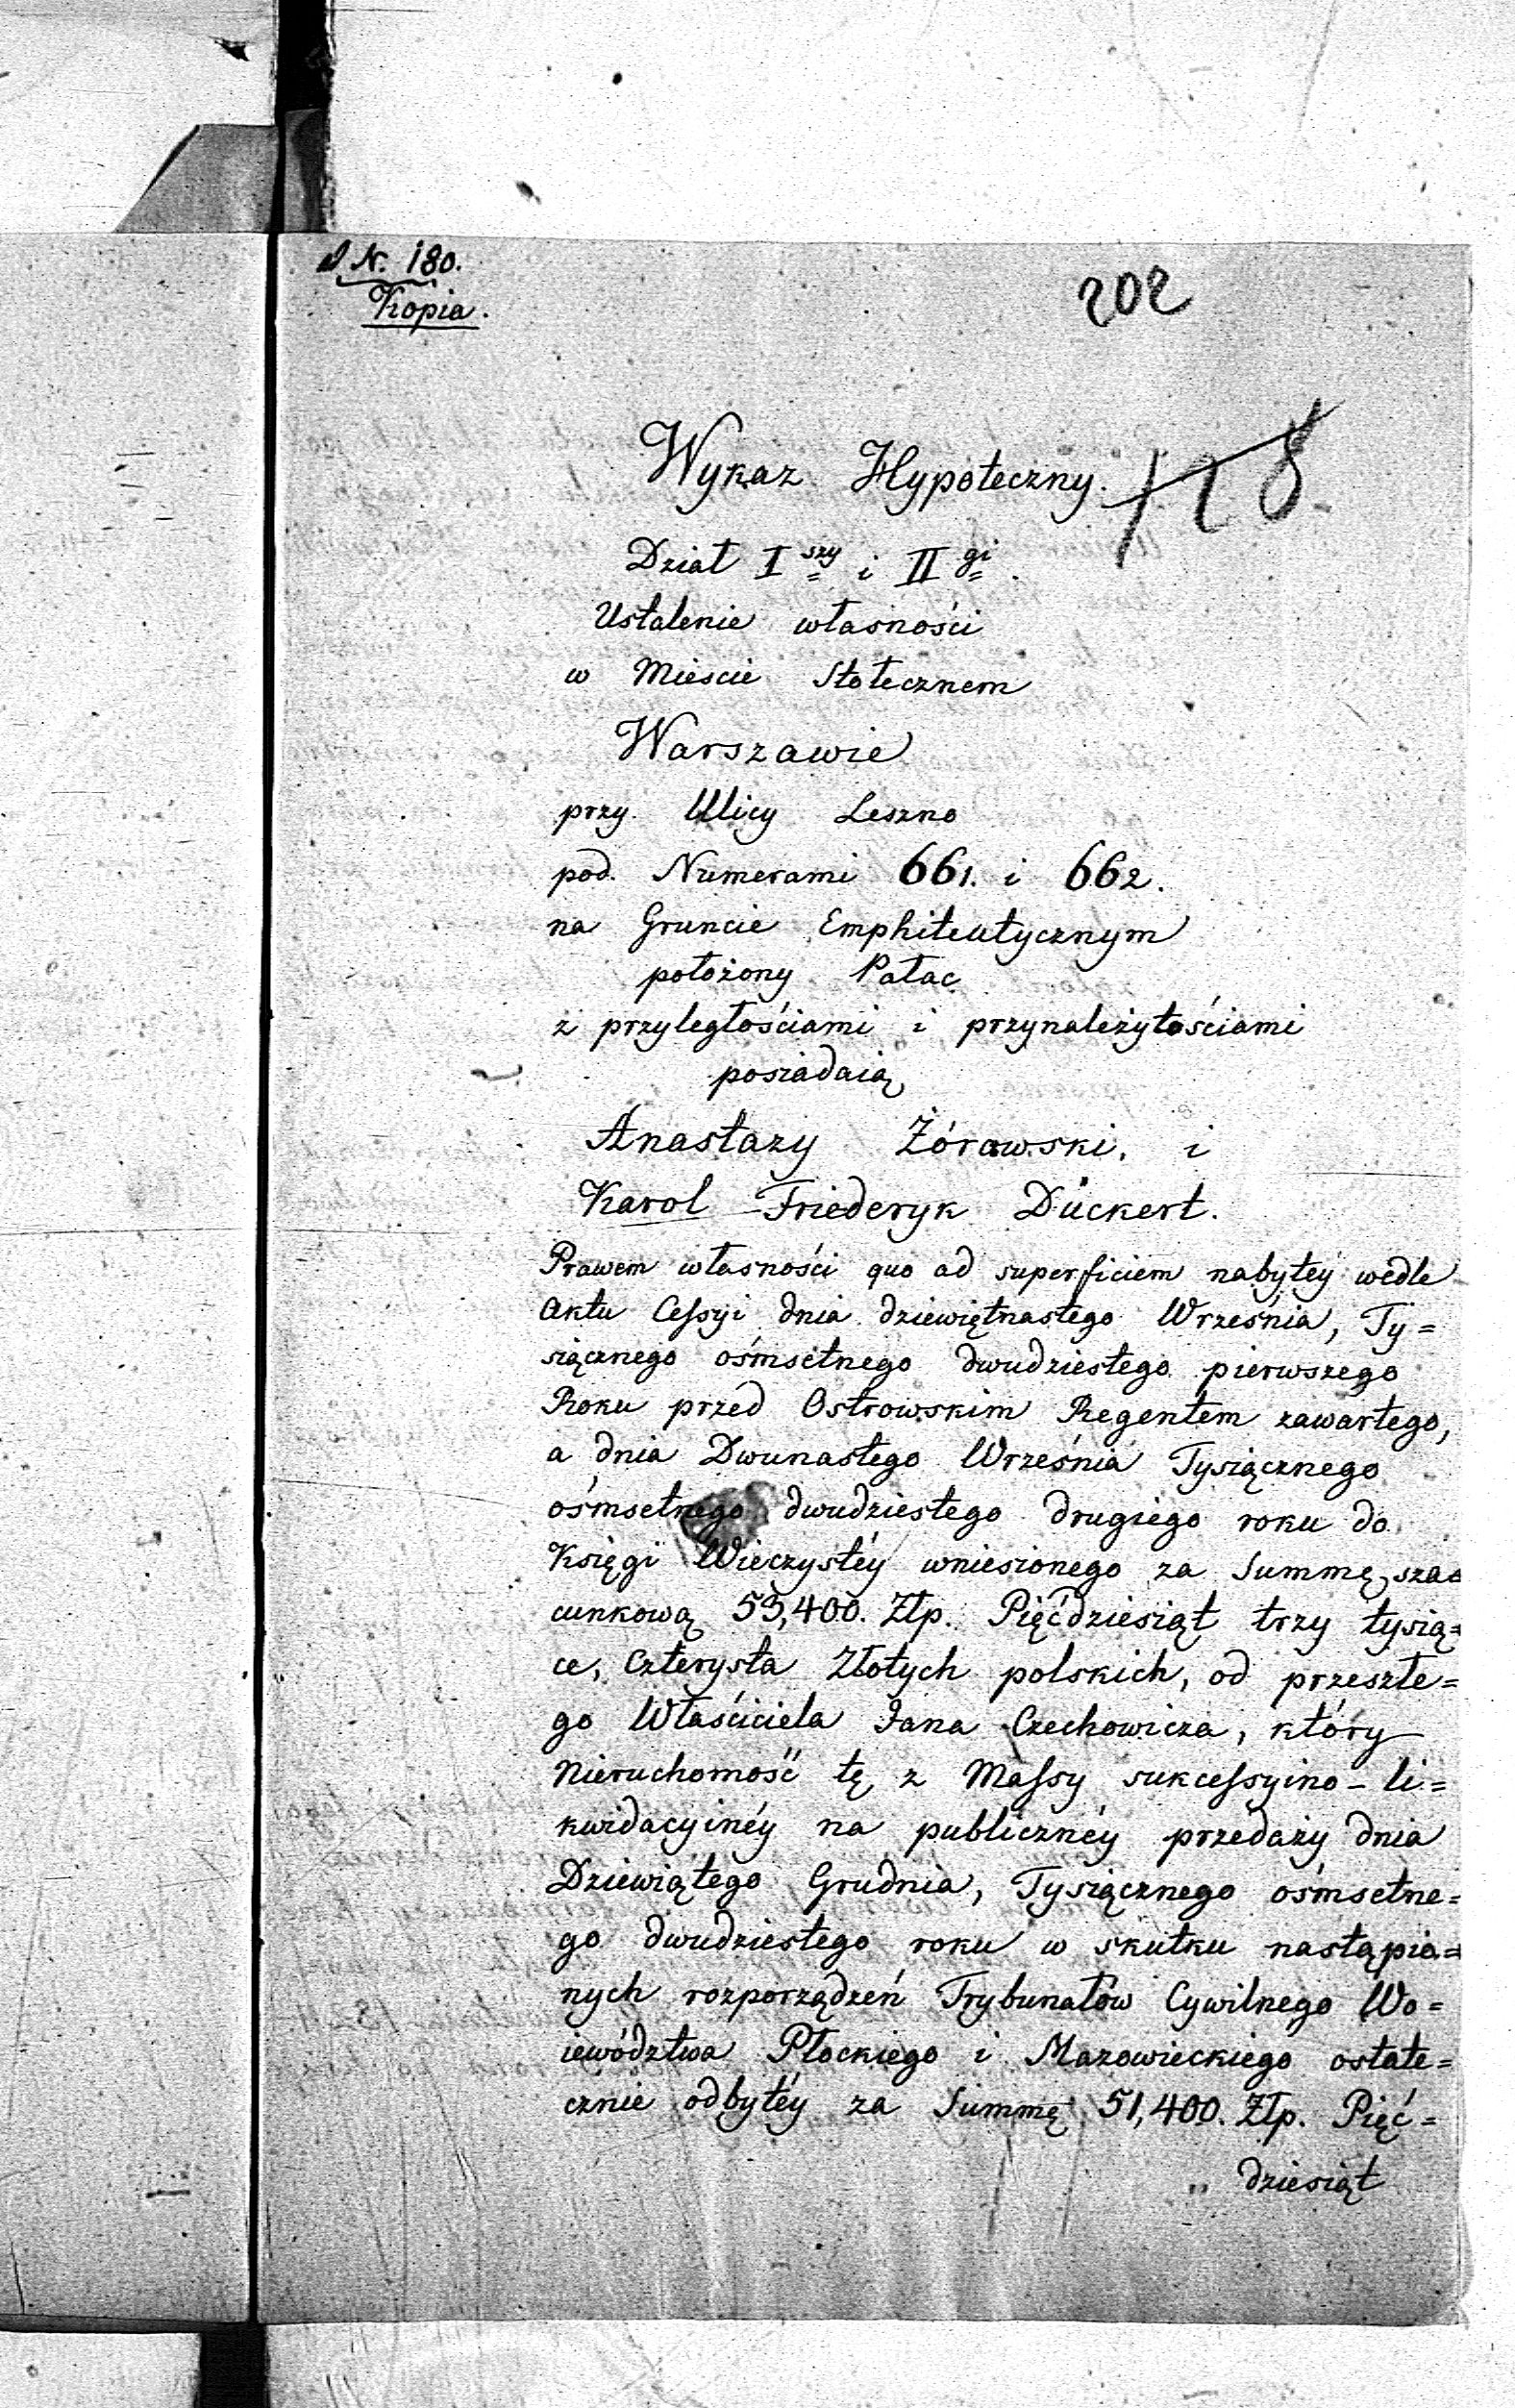 N. 180.
Kopia.
202
128
Wykaz Hypoteczny.
Dział I szy i II gi.
Ustalenie własności
w Mieście Stołecznem
Warszawie
przy Ulicy Leszno
pod Numerami 661. i 662.
na Gruncie Emphiteutycznym
położony Pałac
z przyległościami i przynależytościami
posiadaią
Anastazy Żórawski, i
Karol Friederyk Dückert.
Prawem własności quo ad superficiem nabytéy wedle
Aktu Cessyi dnia dziewiętnastego Września, Ty=
siącznego ośmsetnego dwudziestego pierwszego
Roku przed Ostrowskim Regentem zawartego,
a dnia Dwunastego Września Tysiącznego
ośmsetnego dwudziestego drugiego roku do
Księgi Wieczystéy wniesionego za Summę sza=
cunkową 53,400. Złp. Pięćdziesiąt trzy tysią=
ce, czterysta Złotych polskich, od przeszłe=
go Właściciela Jana Czechowicza, który
Nieruchomość tę z Massy sukcessyino-li=
kwidacyinéy na publicznéy przedaży dnia
Dziewiątego Grudnia, Tysiącznego ośmsetne=
go dwudziestego roku w skutku nastąpio=
nych rozporządzeń Trybunałów Cywilnego Wo=
iewództwa Płockiego i Mazowieckiego ostate=
cznie odbytéy za Summę 51,400. Złp. Pięć=
dziesiąt